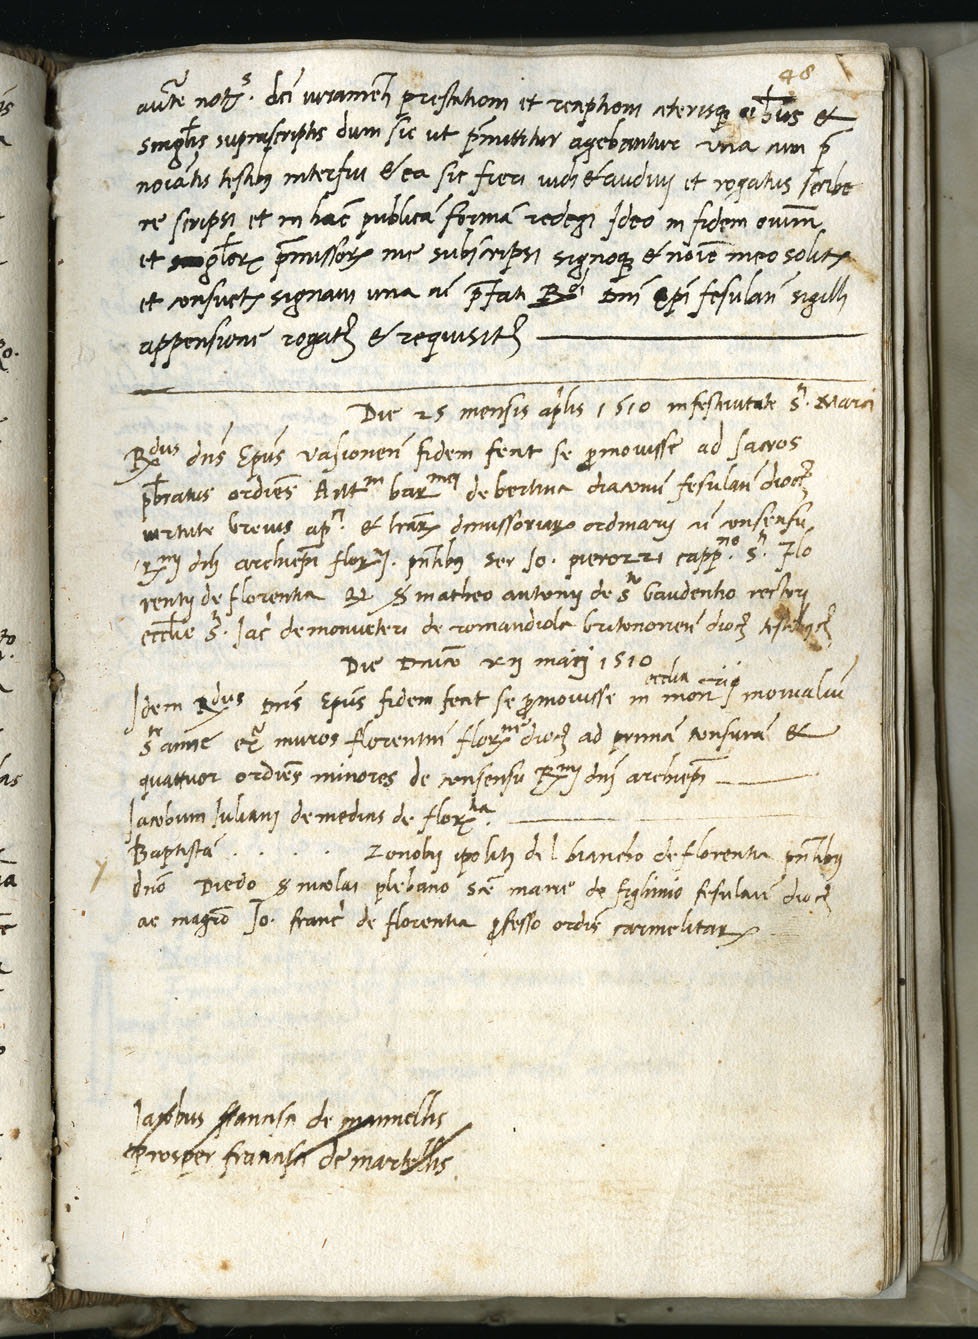 48
aucte noty. dcti iuramenti prestationi et receptioni ceterisq3 oibus et
singlis suprascriptis dum sic ut pmittitur agebantur una cum p
noiatis testibus interfui et ea sic fieri vidi et audivi et rogatus scribe
re scripsi et in hanc publicā formā redegi Ideo in fidem oium
et singlor pmissor me subscripsi signoq3 et noīe meo solitis
et consuetis signavi una cū pfati R.di Dni Epi fesulan̄ sigilli
appensione rogatus et requisitus
Die 25 mensis aplis 1510 in festivitate S. Marci
R.dus dn̄s Ep̄us vasionen̄ fidem fecit se pmovisse ad sacros
pbratus ordines Ant.m bar.mei de bertina diaconū fesulan̄ dioc.
virtute brevis ap.ci et lrar dimissoriar ordinarij cū consensu
R.mi dn̄i archiepi flor.ni. pn̄tibus ser Io. pierozzi capp.no S. Flo
rentij de florentia et S matheo antonij de S.to Gaudentio rectori
ecclie S. Iac de monveteri de romandiola britonorien̄ dioc testibus
Die Dnico xij maij 1510
Idem R.dus Dn̄s Ep̄us fidem fecit se pmovisse in ecclia monrij monialiū
S.te anne ex.a muros florentin̄ flor.ne dioc ad primā tonsurā et
quattuor ordines minores de consensu R.mi dn̄i archiepi
Jacobum Juliani de medicis de flor.tia.
Baptistā . . . . Zenobij ipoliti del biancho de florentia pn̄tibus
dn̄o Diedo S nicolai plebano Scē marie de fighino fesulan̄ dioc
ac magrō Io. franc de florentia pfesso ordis carmelitar
Jacobus francisci de mannellis
Prosper francisci de martellis